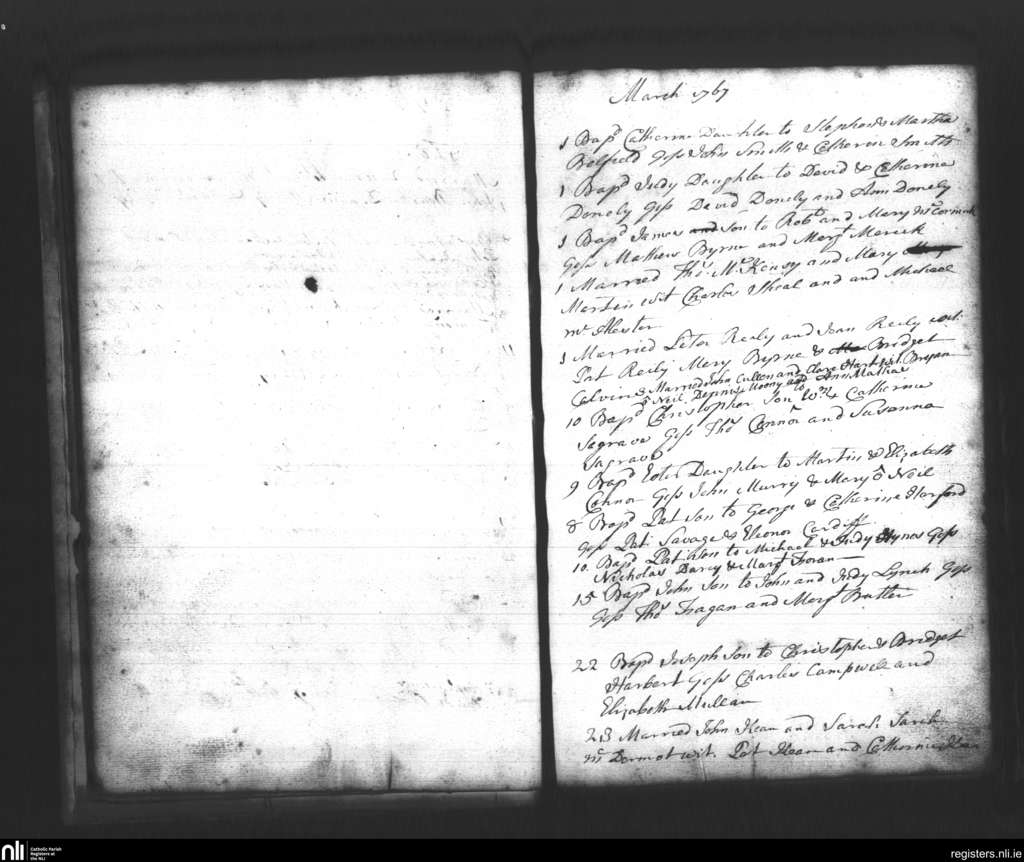 March 1767
1 Bapd Catherine Daughter to Stephen & Martha
Belfield Goss John Smith & Catherine Smith
1 Bapd Judy Daughter to David & Catherine
Donely Goss David Donely and Ann Donely
1 Bapd James and Son to Robt and Mary McCormick
Goss Mathew Byrne and Margt
1 Married Thos McKensy and Mary
Martin wit Charles and and Michael
mc
1 Married Peter Realy and Joan Realy wit.
Pat Realy Mary Byrne & Bridget
Colvin 3 Married John Cullen and Clare Hart wit. Bryan
o Neil. Dennis Roony and Ann
10 Bapd Christopher Son to Wm & Catherine
Segrave Goss Thos Connor and Susanna
Sagrave
9 Bapd Ester Daughter to Martin & Elizabeth
Connor Goss John Murry & Mary O Neil
8 Bapd Pat Son to George & Catherine Harford
Goss Pat. Savage & Eleonor Cardiff
10. Bapd Pat Son to Michael & Judy Hynes Goss
Nicholas Darcy & Margt Foran
15 Bapd John Son to John and Judy Lynch Goss
Goss Thos Fagan and Margt Butler
22 Bapd Joseph Son to Christopher & Bridget
Harbert Goss Charles Campwel and
Elizabeth Mullan
23 Married John Kean and Sarah Sarah
mc Dermot wit. Pat Kean and Catherine
nli
Catholic Parish
Registers at
the NLI
registers.nli.ie